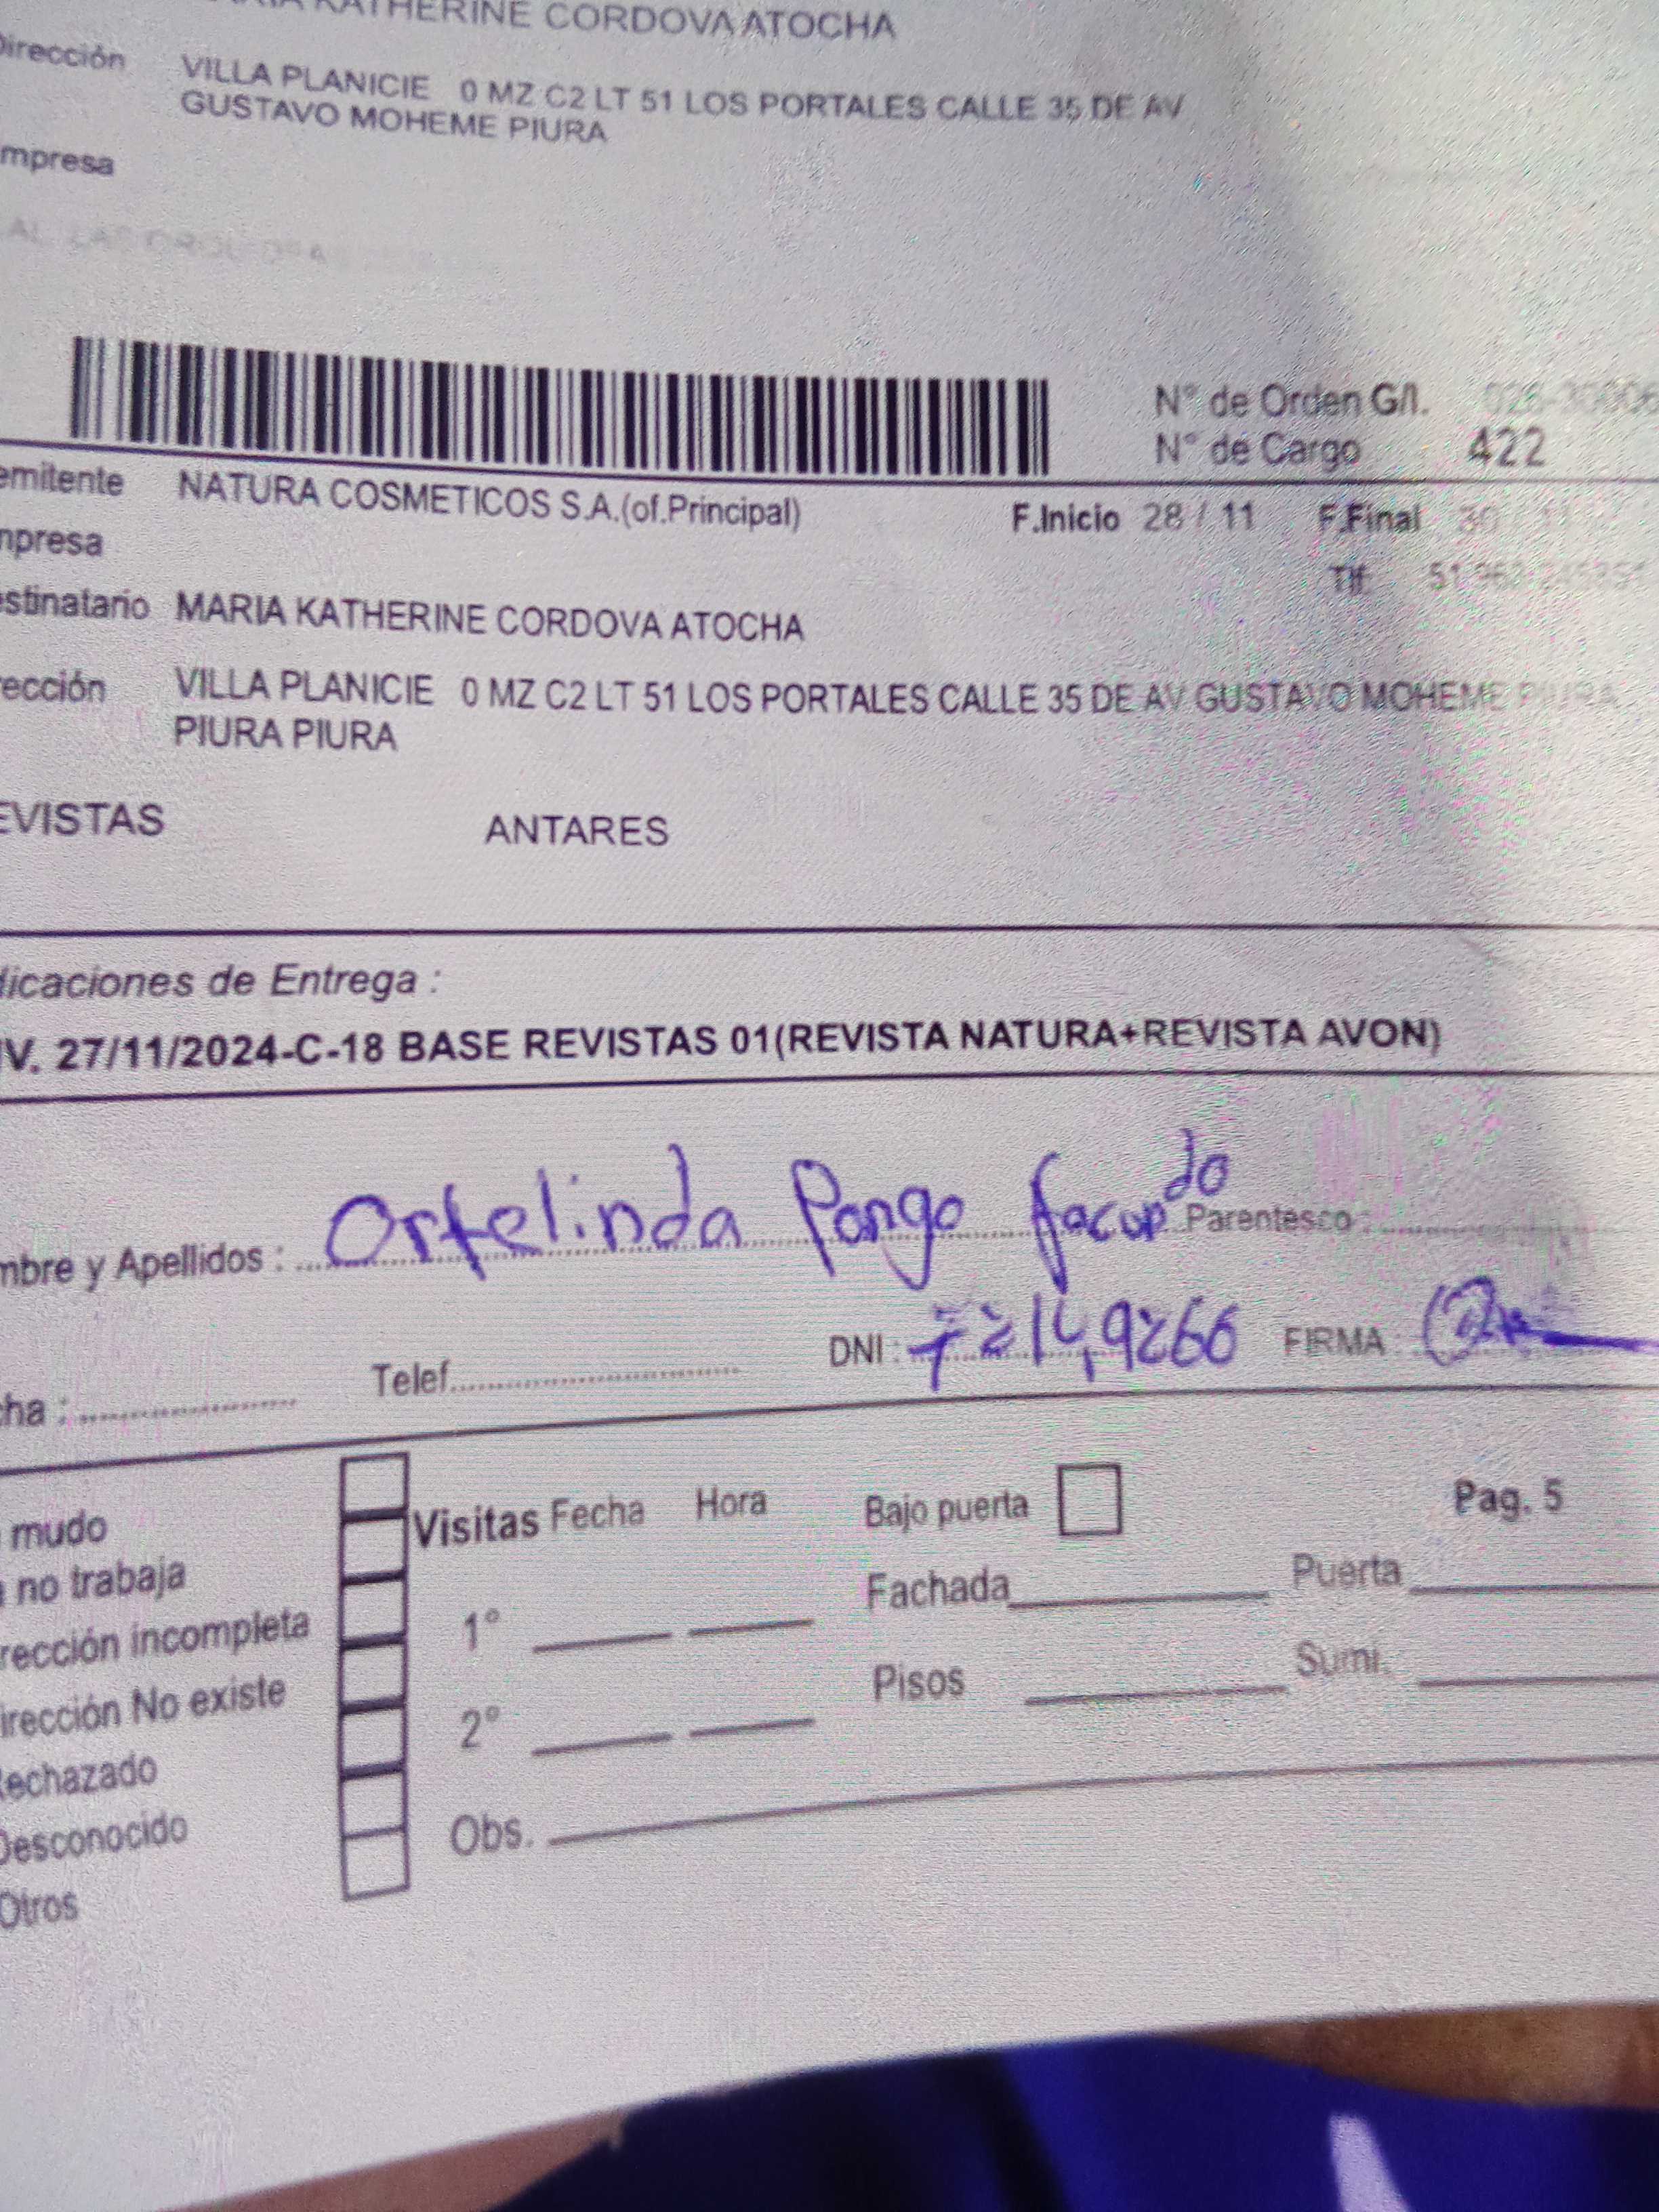 KATHERINE CORDOVA ATOCHA
Dirección VILLA PLANICIE 0 MZ C2 LT 51 LOS PORTALES CALLE 35 DE AV
GUSTAVO MOHEME PIURA
mpresa
N° de Orden G/I.
N° de Cargo 422
emitente NATURA COSMETICOS S.A.(of.Principal) F.Inicio 28 / 11 F.Final 30 / 11
npresa
Tlf.
estinatario MARIA KATHERINE CORDOVA ATOCHA
rección VILLA PLANICIE 0 MZ C2 LT 51 LOS PORTALES CALLE 35 DE AV GUSTAVO MOHEME PIURA
PIURA PIURA
EVISTAS ANTARES
dicaciones de Entrega :
IV. 27/11/2024-C-18 BASE REVISTAS 01(REVISTA NATURA+REVISTA AVON)
mbre y Apellidos : Ortelinda Pongo facundo Parentesco :
cha : Telef. DNI : 72149266 FIRMA :
mudo
no trabaja
rección incompleta
irección No existe
Rechazado
Desconocido
Otros
Visitas Fecha Hora
1°
2°
Obs.
Bajo puerta Pag. 5
Fachada Puerta
Pisos Sumi.